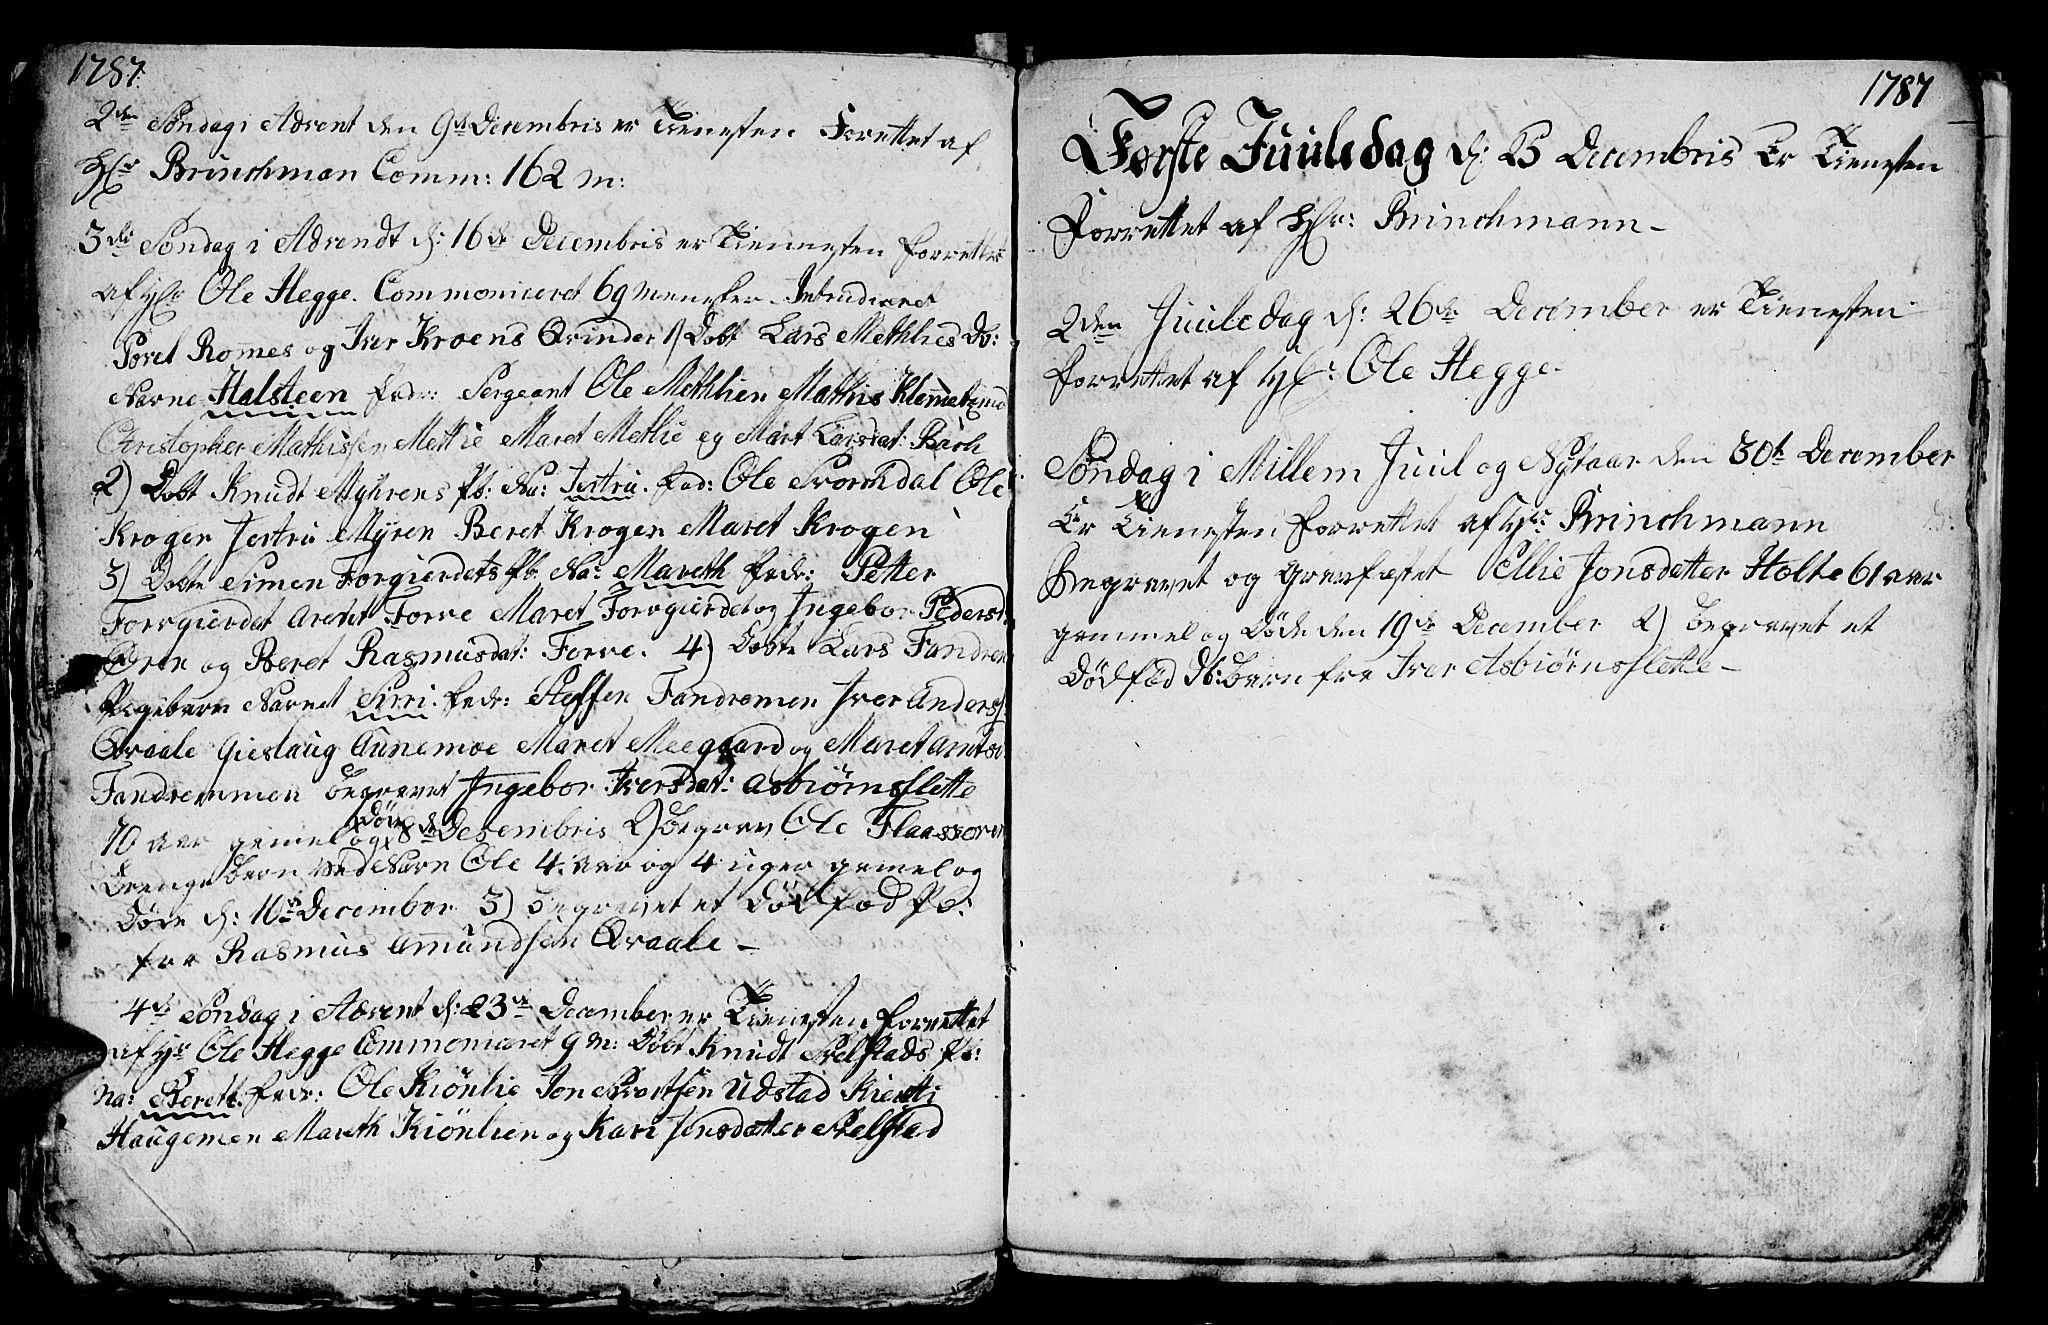 1787
2den Søndag i Advent den 9de Decembris er Tienesten Forettet af
Hr Brinchman Comm: 162 m:
3die Søndag i Advendt d: 16de Decembris er Tiennesten forrettet
af Hr Ole Hegge. Commoniceret 69 Menesker. Introduceret
Povel Romes og Iver Kroens Qvinder 1) Døbt Lars Methlies Db:
Navne Halsteen fadr: Sergeant Ole Methlien Mathis Klemmetz
Christopher Mathissen Methie Maret Methie og Marit Larsdat: Bach
2) Døbt Knudt Myhrens Pb: Na: Jertru. fad: Ole Svorchdal Ole
Krogen Jertru Myren Beret Krogen Maret Krogen
3) Døbte Simen Forgierdets Pb Na: Mareth fadr: Petter
Forvgierdet Arent Forve Maret Forvgierdet og Ingebor Pedersd
Øren og Beret Rasmusdat: Forve. 4) Døbte Lars Fandrem
Pigebarn Navnet Sirri. fadr: Steffen Fandremen Iver Anders
Qvaale Gieslaug Aunemoe Maret Meegaard og Maret Arntsd
Fandremmen begravet Ingebor Iversdat: Asbiørnsslette
70 aar gemel og Døde 8de Desembris 2) begrav Ole Flaassoren
Drenge barn ved Navn Ole 4 aar og 4 uger gemel og
Døde d: 10de December 3) begravet et Dødfød Pb:
fra Rasmus Amundsen Qvaale –
4de Søndag i Advent d: 23de December er Tienesten forrettet
af Hr Ole Hegge Commoniceret 9 m: Døbt Knudt Selstads Pb:
Na: Bereth. fadr: Ole Kiönlie Jon Sivertsen Udstad Kierti
Haugemen Mareth Kiönlien og Kari Jonsdatter Selstad
1787
Første Juuledag d: 25 Decembris Er Tienesten
Forrettet af Hr: Brinchmann –
2den Juuledag d: 26de December er Tienesten
forrettet af Hr: Ole Hegge.
Søndag i Millem Juul og Nytaar den 30te December
Er Tienesten forrettet af Hr: Brinchmann
Begravet og Gravfæstet Ellie Jonsdatter Holte 61 aar
gammel og Døde den 19de December 2) begravet et
Dødfød Db: barn fra Iver Asbiørnsslette –